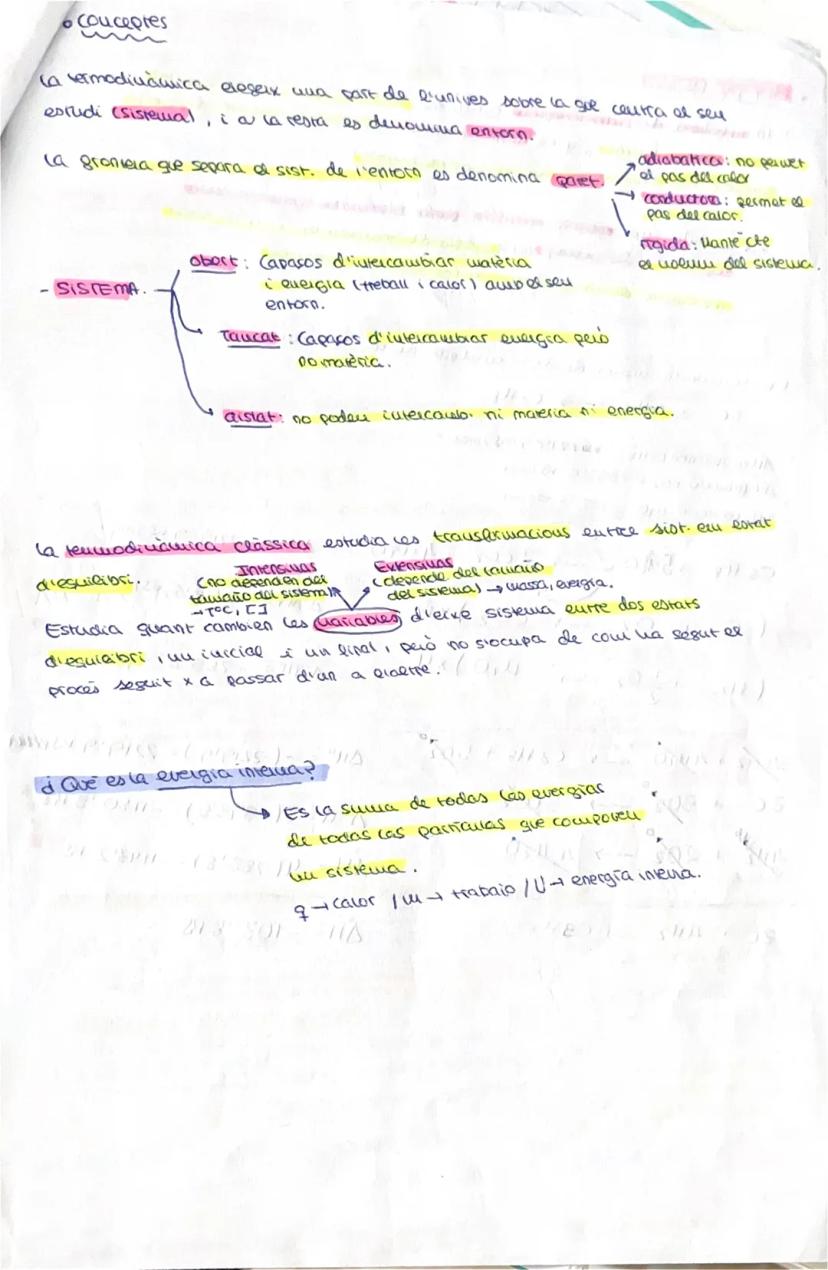 • Conceptes
La termodinàmica esegeix una part de l'univers sobre la que centra el seu
estudi (sistema), i a la resta es denomina entorn.
La frontera que separa el sist. de l'entorn es denomina paret.
adiabatica: no permet
el pas del calor
conductora: permet el
pas del calor.
rígida: Manté cte
el volum del sistema.
- SISTEMA.
obert: Capasos d'intercambiar matèria
i energia (treball i calor) amb el seu
entorn.
Tancat: Capaços d'intercambiar energia però
no matèria.
aislat: no poden intercamb. ni materia ni energia.
La termodinàmica clàssica estudia les transformacions entre sist. em estat
d'equilibri.
Intensivas
(no dependen del
tamaño del sistema)
→ TºC, [ ]
Extensivas
(depende del tamaño
del sistema) → massa, energia.
Estudia quant cambien les variables d'eixe sistema entre dos estats
d'equilibri, un inicial i un final, però no s'ocupa de com ha segut el
procés seguit x a passar d'un a l'altre.
¿Qué es la energia interna?
→ Es la suma de todas las energias
de todas las partículas que componen
un sistema.
q → calor / w → trabajo / U → energía interna.